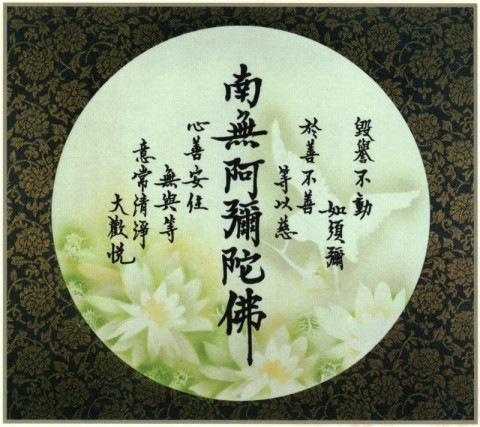 毀譽不動
如須彌
於善不善
等以慈
南無阿彌陀佛
心善安住
無與等
意常清淨
大歡悅